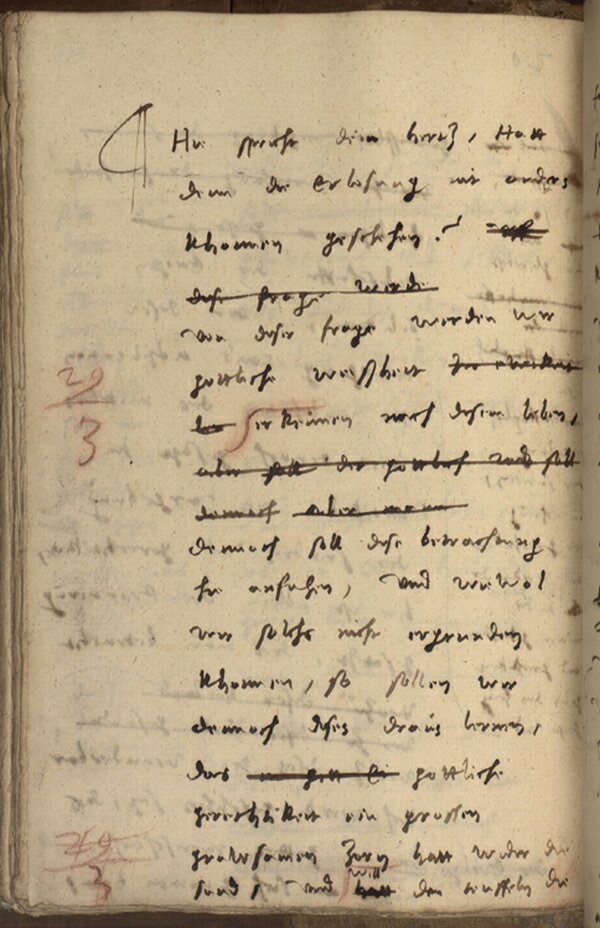 ¶ Hie spricht dein hertz, Hatt
denn die Erlosung nit anders
khonnen geschehen?
dise frage werde
von diser frage werden wir
gottliche weißheit
erkennen nach disem leben,
aber soll die gottlich und soll
dennoch aber mann
dennoch soll dise betrachtung
hie anfahen, und wiewol
wir solchs nicht ergrunden
khonnen, so sollen wir
dennoch dises draus lernen,
das gottliche
gerechtikeit ein grossen
grawsamen zorn hatt wider die
sund, und hatt will den teuffeln die
29
3
29
3